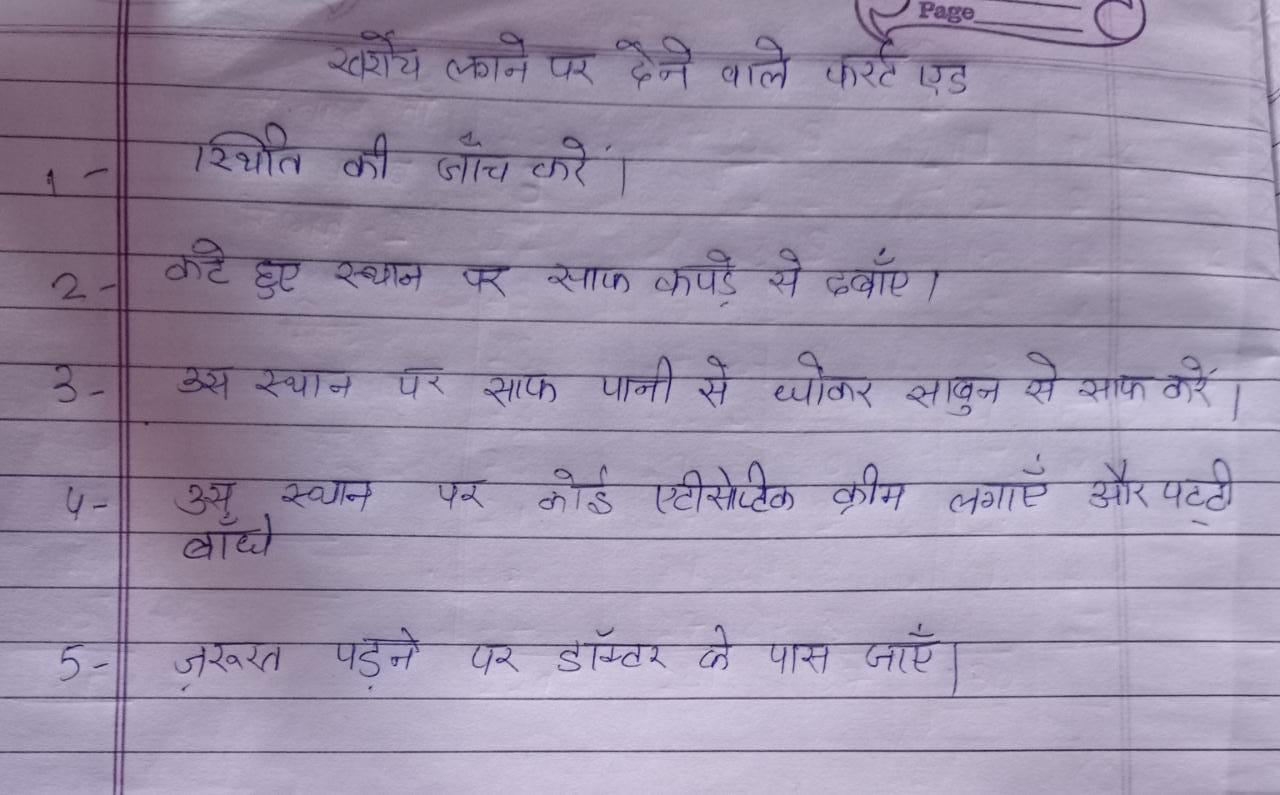 Page
खरोंच लगने पर देने वाले फर्स्ट एड
1- स्थिति की जाँच करें।
2- कटे हुए स्थान पर साफ कपड़े से दबाँए।
3- उस स्थान पर साफ पानी से धोकर साबुन से साफ करें।
4- उस स्थान पर कोई एटीसेप्टिक क्रीम लगाएँ और पट्टी
बाँधे
5- ज़रूरत पड़ने पर डॉक्टर के पास जाएँ।